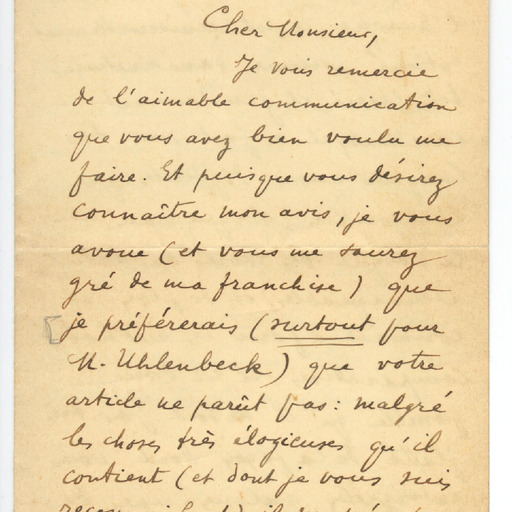 Cher Monsieur,
Je vous remercie
de l'aimable communication
que vous avez bien voulu me
faire. Et puisque vous désirez
connaître mon avis, je vous
avoue (et vous me saurez
gré de ma franchise) que
je préférerais (surtout pour
M. Uhlenbeck) que votre
article ne parût pas : malgré
les choses très élogieuses qu'il
contient (et dont je vous suis